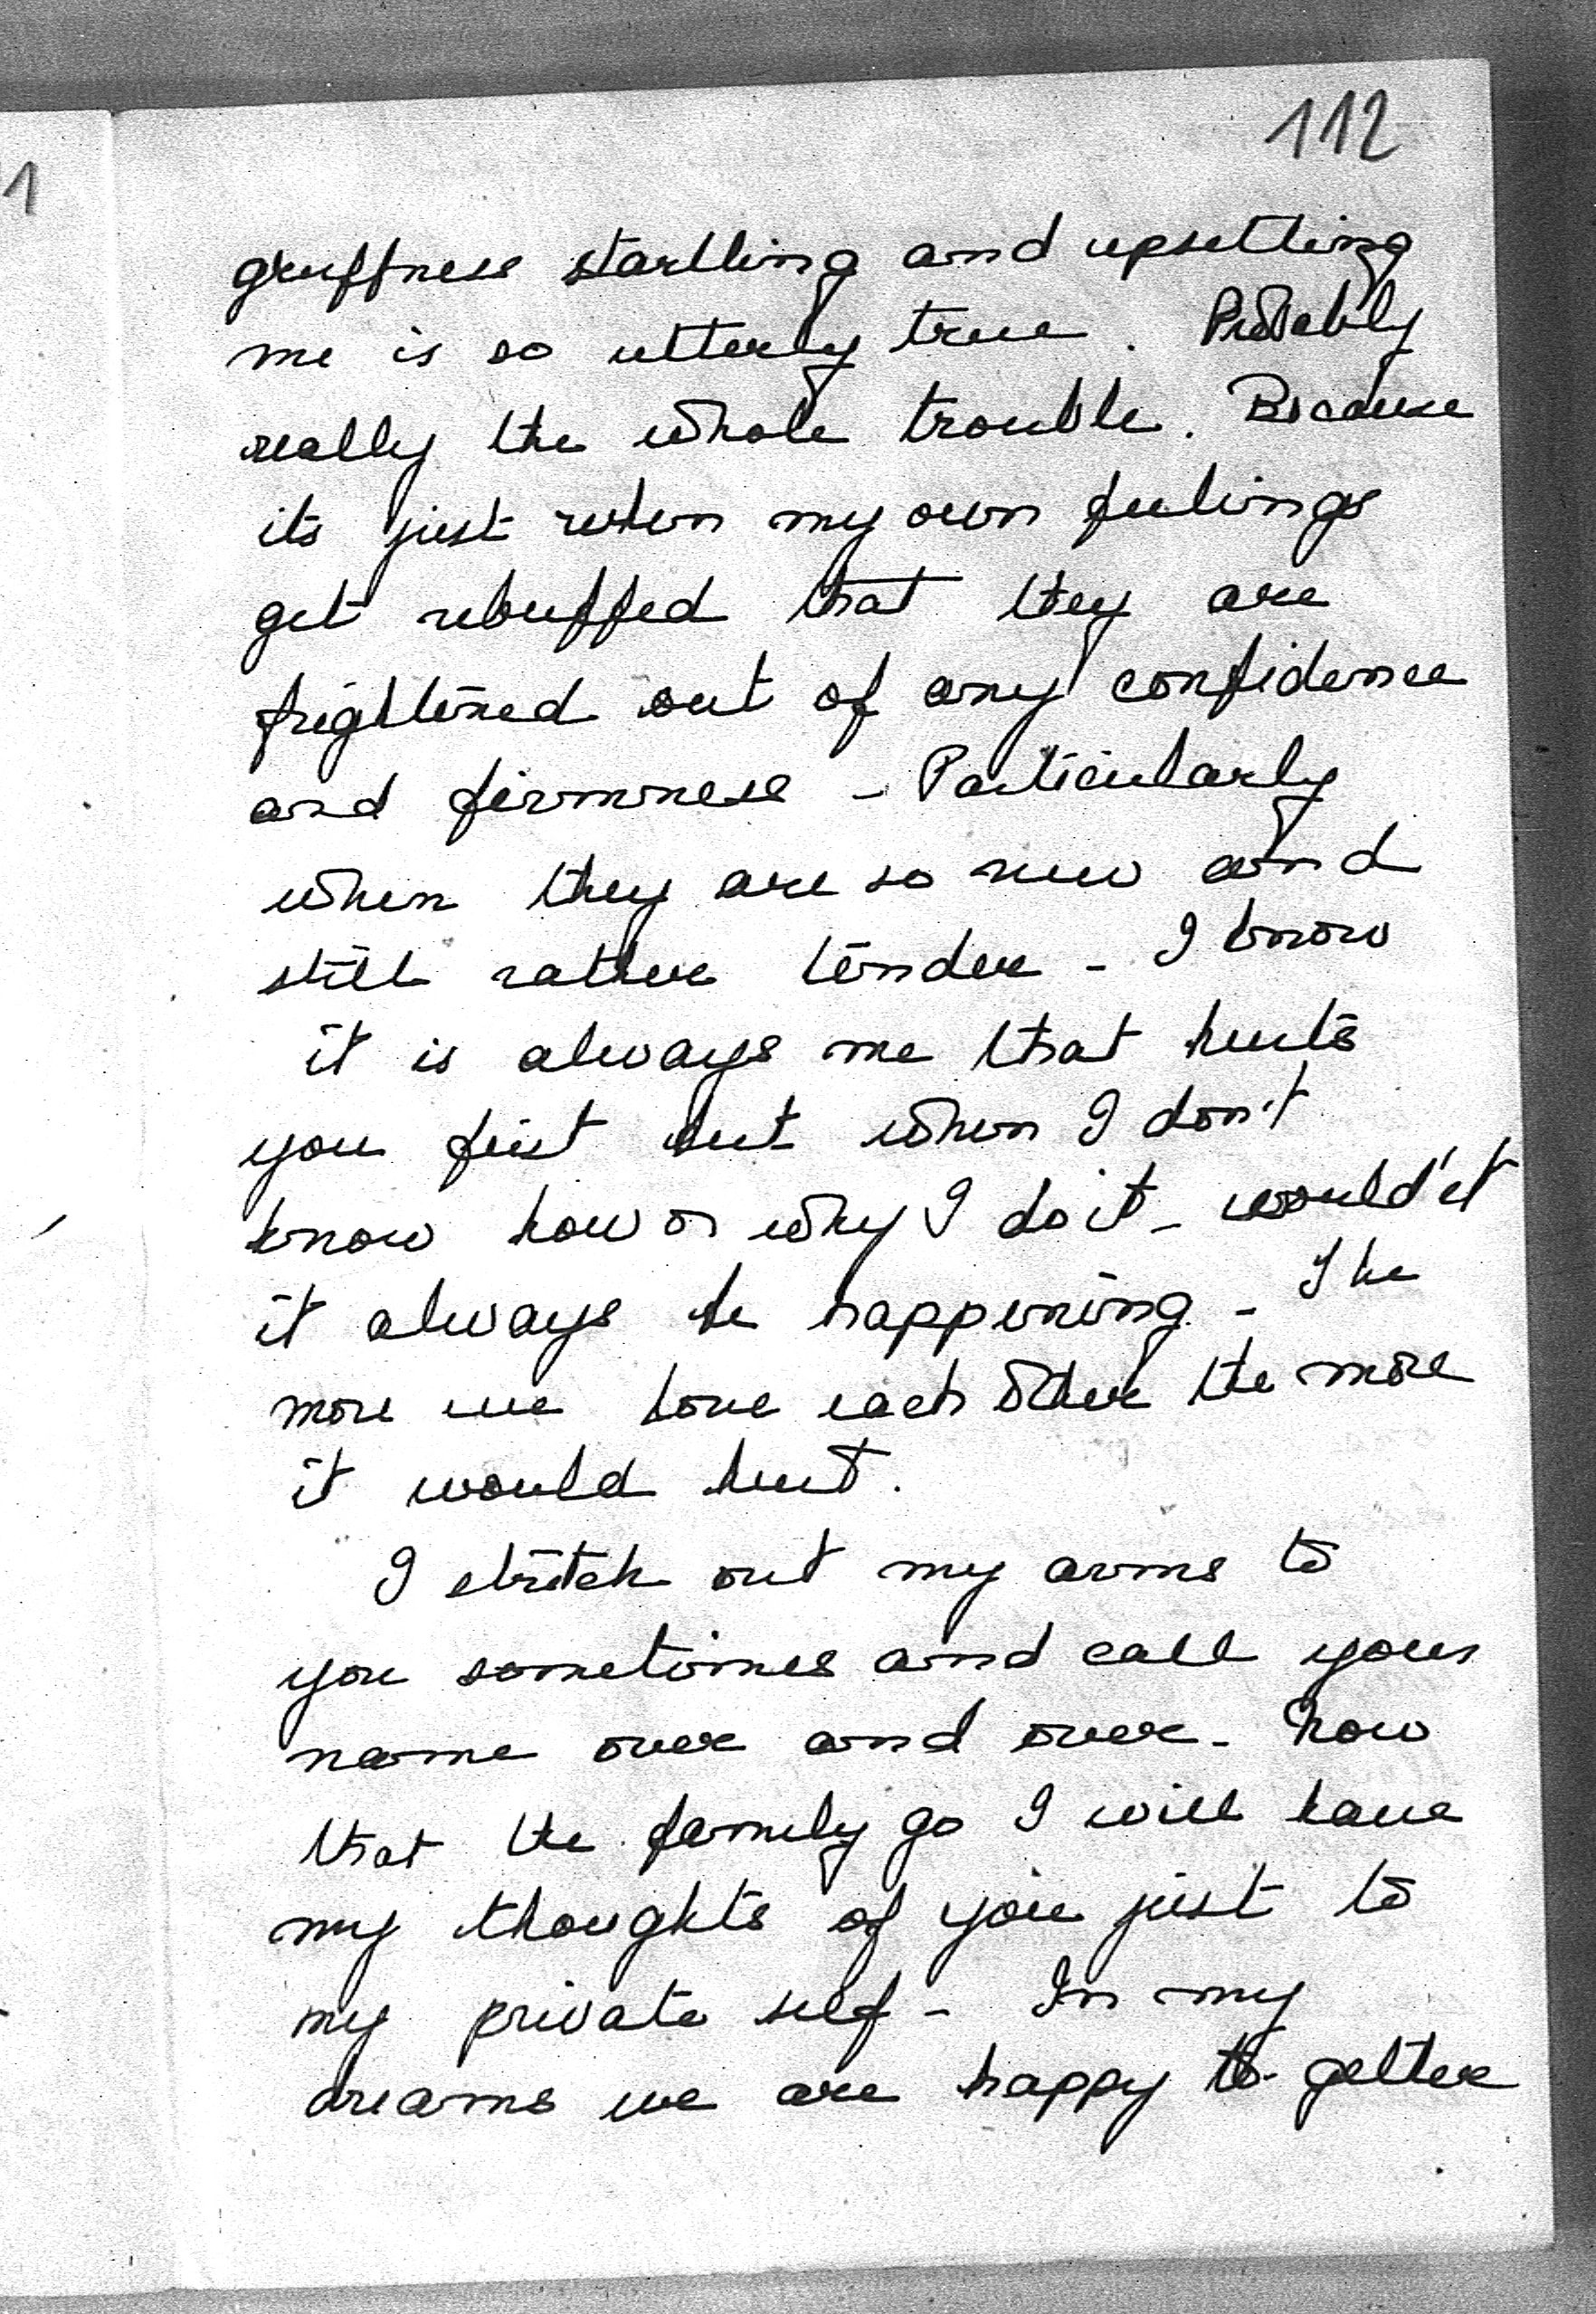 112
1
gruffness startling and upsetting
me is so utterly true. Probably
really the whole trouble. Because
its just when my own feelings
get rebuffed that they are
frightened out of any confidence
and firmness - Particularly
when they are so new and
still rather tender - I know
it is always me that hurts
you first but when I don't
know how or why I do it - would'nt
it always be happening - The
more we love each other the more
it would hurt.
I stretch out my arms to
you sometimes and call your
name over and over - Now
that the family go I will have
my thoughts of you just to
my private self - In my
dreams we are happy to-gether